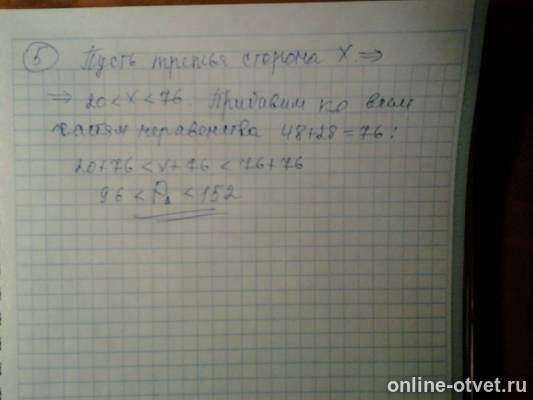 5 Пусть третья сторона X. ⇒
⇒ 20 < X < 76. Прибавим ко всем
частям неравенства 48+28=76:
20+76 < X+76 < 76+76
96 < P△ < 152
online-otvet.ru